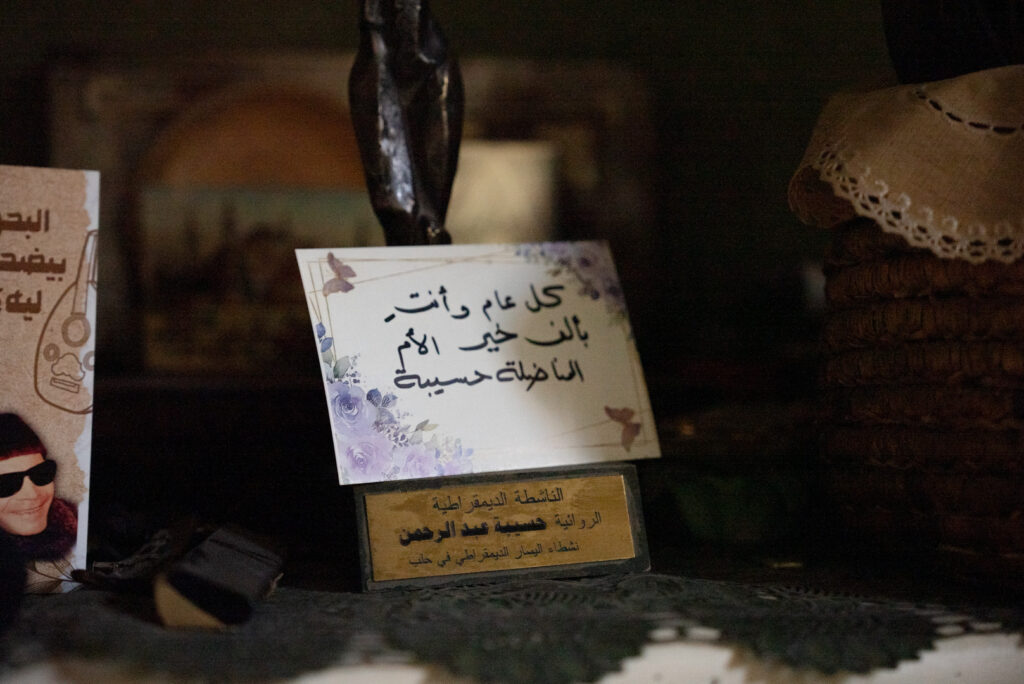 كل عام وأنتِ
بألف خير الأم
المناضلة حسيبة
الناشطة الديمقراطية
الروائية حسيبة عبد الرحمن
نشطاء اليسار الديمقراطي في حلب
البحر
بيضحك
ليه؟